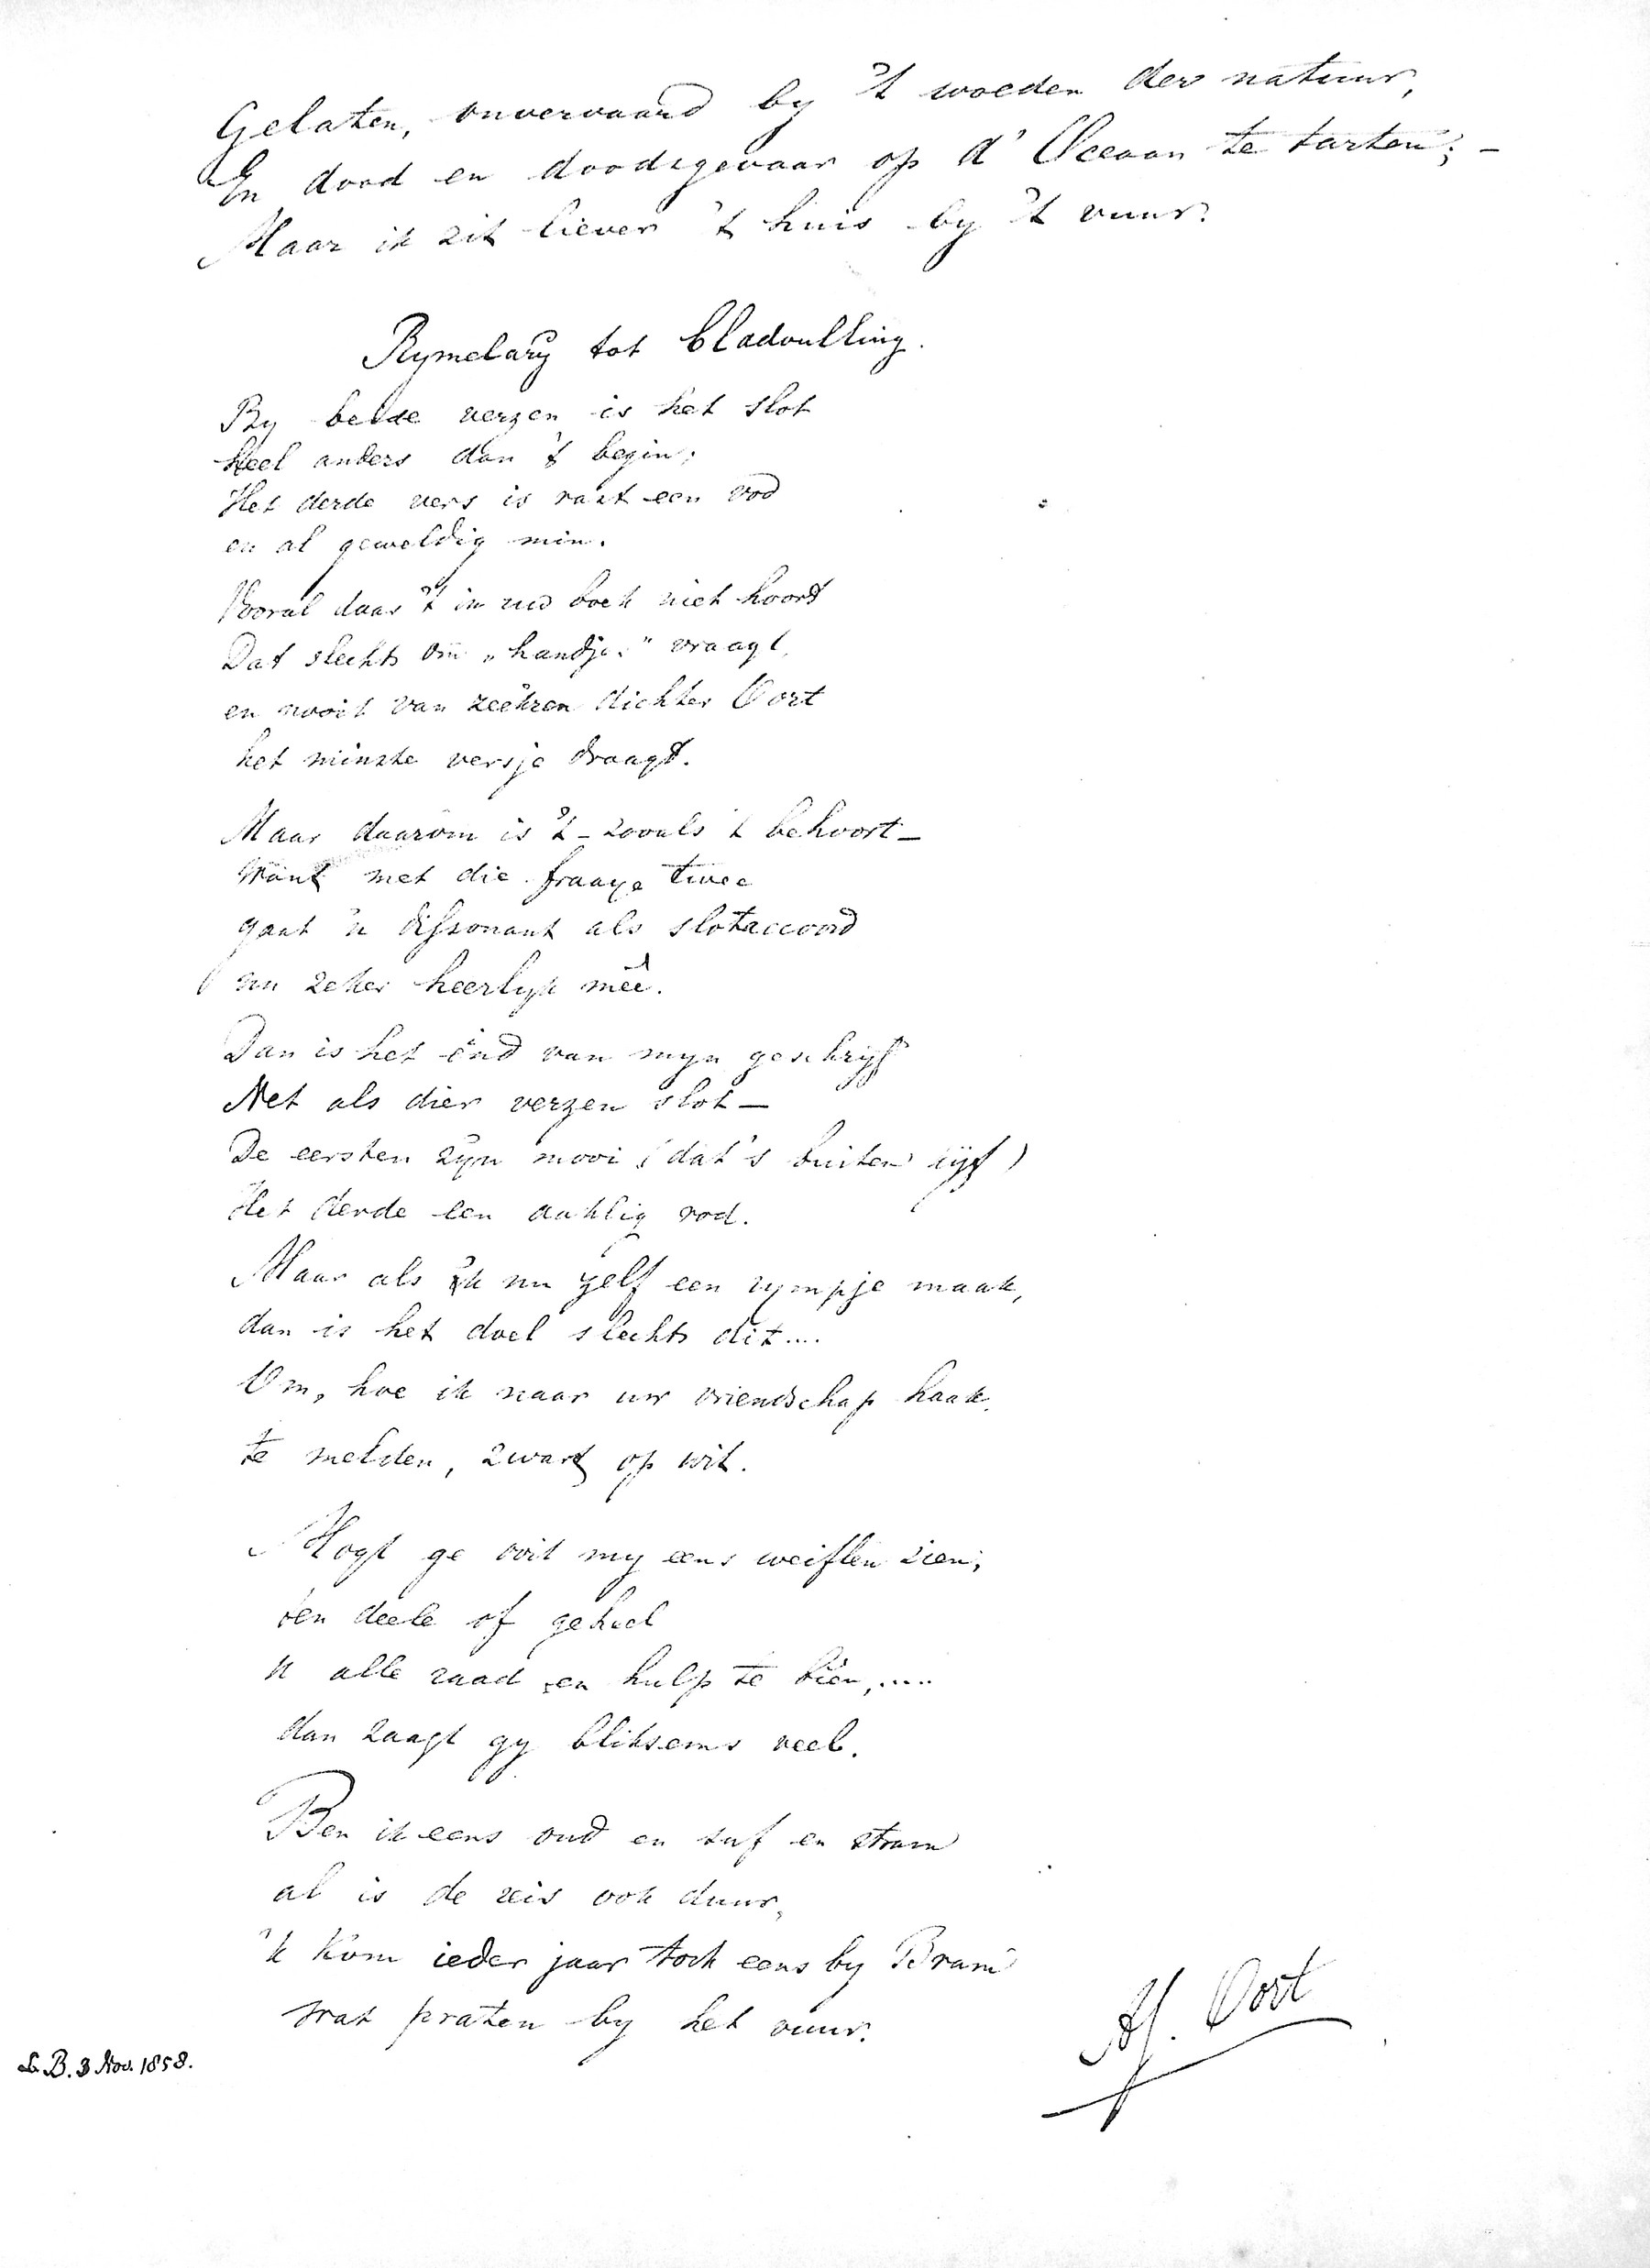 Gelaten, onvervaard by 't woeden der natuur,
En dood en doodsgevaar op d' Oceaan te tarten; –
Maar ik zit liever 't huis by 't vuur.
Rymelary tot bladvulling.
By beide verzen is het slot
heel anders dan 't begin;
Het derde vers is vast een vod
en al geweldig min.
Vooral daar 't in uw boek niet hoort
Dat slechts om „handje" vraagt,
en nooit van zeekren dichter Oort
het minste versje draagt.
Maar daarom is 't – zooals 't behoort –
Want met die fraaye twee
gaat 'n dissonant als slotaccoord
nu zeker heerlyk meê.
Dan is het end van myn geschryf
Net als dier verzen slot –
De eersten zyn mooi (dat 's buiten kyf)
Het derde een aaklig vod.
Maar als 'k nu zelf een rympje maak,
dan is het doel slechts dit....
Om, hoe ik naar uw vriendschap haak,
te melden, zwart op wit.
Mogt ge ooit my eens weiflen zien,
ten deele of geheel
U alle raad en hulp te biên,....
dan zaagt gy bliksems veel.
Ben ik eens oud en suf en stram
al is de reis ook duur,
'k Kom ieder jaar toch eens by Bram
wat praten by het vuur.
Af. Oort
L. B. 3 Nov. 1858.